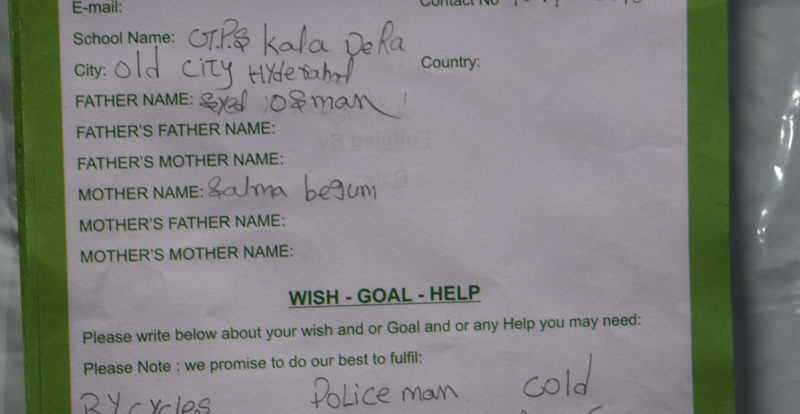 E-mail: Contact No
School Name: G.T.P.S Kala DeRa
City: Old City Hyderabad Country:
FATHER NAME: Syed OSman
FATHER'S FATHER NAME:
FATHER'S MOTHER NAME:
MOTHER NAME: Salma begum
MOTHER'S FATHER NAME:
MOTHER'S MOTHER NAME:
WISH - GOAL - HELP
Please write below about your wish and or Goal and or any Help you may need:
Please Note : we promise to do our best to fulfil:
BY cycles Police man cold